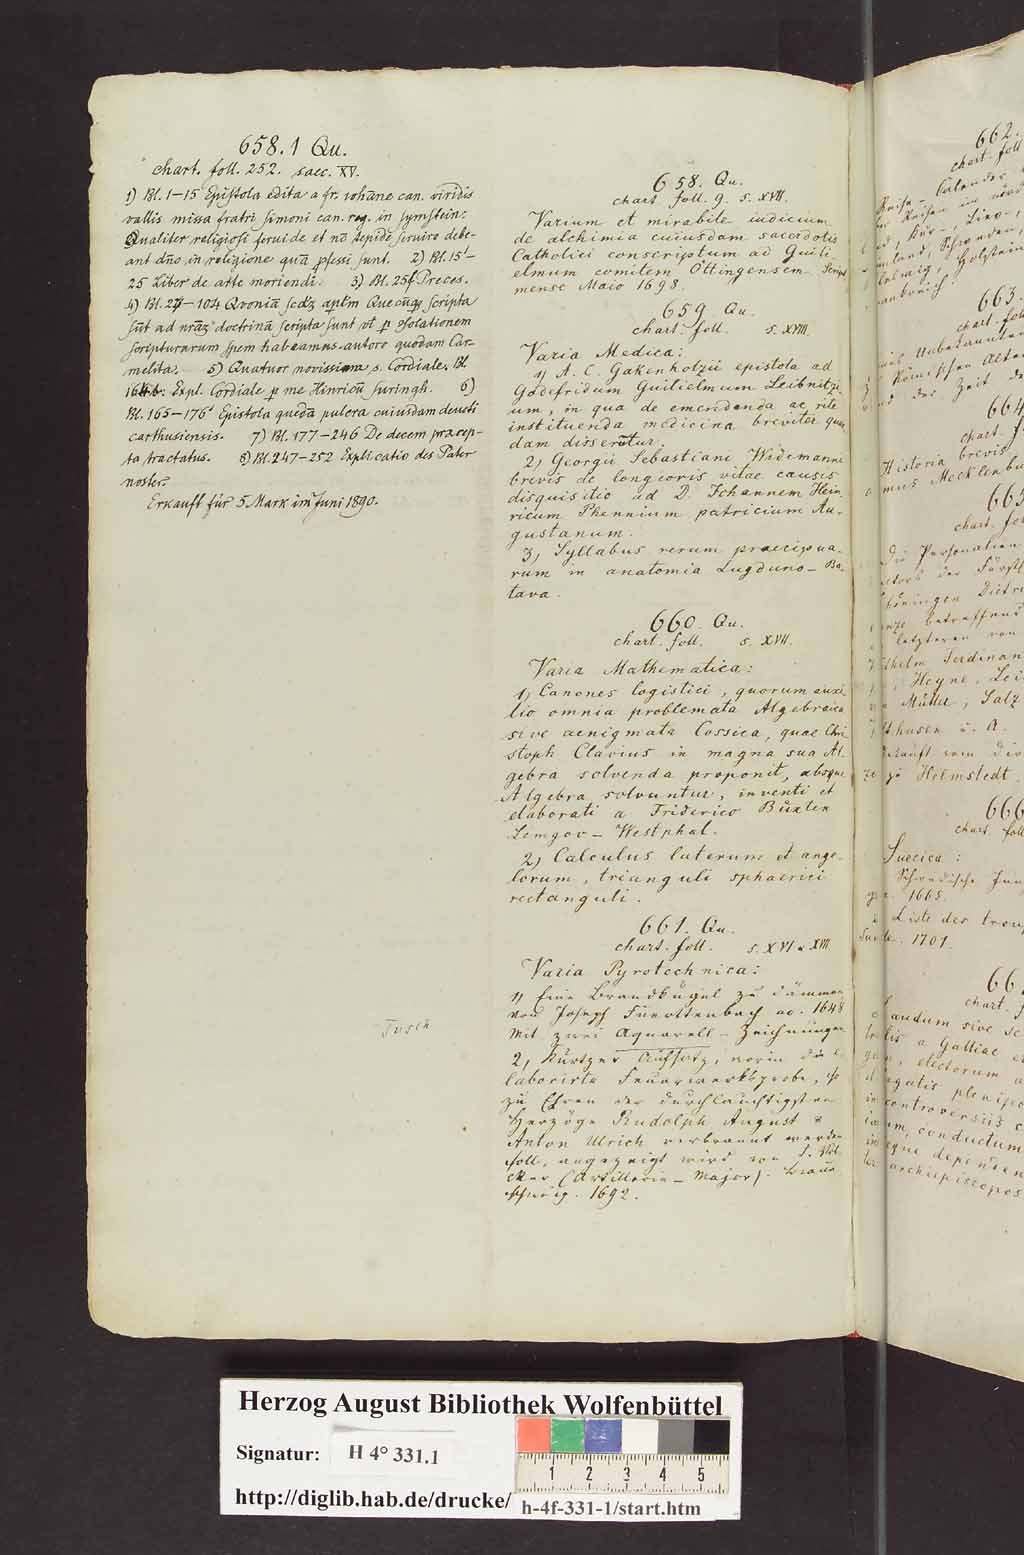 658.1 Qu.
chart. foll. 252. saec. XV.
1) Bl. 1–15 Epistola edita a fr. iohāne can. viridis
vallis missa fratri simoni can. reg. in
Qualiter religiosi feruide et nō tepide seruire debe-
ant dño in religione quā pfessi sunt. 2) Bl. 15'–
25 Liber de arte moriendi. 3) Bl. 25f Preces.
4) Bl. 27–104 Qvoniā aplm scripta
sūt ad doctrinā scripta sunt vt p
scripturarum spem habeamus. autore quodam Car-
melita. – 5) Quatuor novissima s. Cordiale. Bl.
164b. Expl. Cordiale p me Hinricū suringh. 6)
Bl. 165–176 Epistola quedā pulcra cuiusdam deuoti
carthusiensis. 7) Bl. 177–246 De decem precep-
tis tractatus. 8) Bl. 247–252 Explicatio des Pater
noster.
Erkauft für 5 Mark im Juni 1890.
Tusch
658. Qu.
chart. foll. 9. s. XVII.
Varium et mirabile iudicium
de alchimia cuiusdam sacerdotis
Catholici conscriptum ad Guili
elmum comitem Öttingensem
mense Maio 1698.
659 Qu.
chart. foll. s. XVIII.
Varia Medica:
1) A. C. Gakenholzii epistola ad
Godefridum Guilielmum Leibnitzi-
um, in qua de emendenda ac rite
instituenda medicina breviter quae
dam disserūtur.
2) Georgii Sebastiani Widemanni
brevis de longioris vitae causis
disquisitio ad D. Johannem Hein-
ricum Thennium patricium Au-
gustanum.
3) Syllabus rerum praecipua-
rum in anatomia Lugduno – Ba-
tava.
660. Qu.
chart. foll. s. XVII.
Varia Mathematica:
1) Canones logistici, quorum auxi
lio omnia problemata Algebraica
sive aenigmata Cossica, quae Chri
stoph Clavius in magna sua Al-
gebra solvenda proponit, absque
Algebra solvuntur, inventi et
elaborati a Friderico Büxten
Lemgov – Westphal.
2) Calculus laterum et ange-
lorum, trianguli sphaerici
rectanguli.
661. Qu.
chart. foll. s. XVI u XVII
Varia Pyrotechnica:
1) Eine Brandkugel zu dämmen
von Joseph Furottenbach ao. 1648
mit zwei Aquarell – Zeichnungen
2) Kurtzer Aufsatz, worin die e
laborirte Feuerwerksprobe, so
zu Ehren der durchlauchtigsten
Herzöge Rudolph August u
Anton Ulrich verbrannt werden
soll, angezeigt wird von J. Völ
cker (Artillerie – Major). Braun
schweig. 1692.
662.
chart. foll
Reise – Calender
Reisen in
Kur –, Liev –,
Schweden,
Holstein
663.
chart. foll
Unbekannten
Römischen Alter
der Zeit de
664
chart. f
Historia brevis
mus Mecklenbu
665
chart. fol
Die Personalien
Fürstl
Dietri
betreffend
letzteren von
Ferdinan
Heyne, Lei
Müller, Salz
u. A.
zu Helmstedt.
666
chart. foll
Suecica:
Schwedische
1665.
Liste der troup
1701.
66
chart. f
Laudum sive se
a Galliae e
electorum a
plenipo
controversiis c
conductum
dependen
archiepiscopos
Herzog August Bibliothek Wolfenbüttel
Signatur: H 4° 331.1
1 2 3 4 5
http://diglib.hab.de/drucke/ h-4f-331-1/start.htm